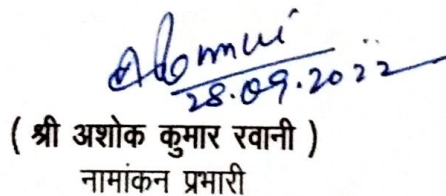 28.09.2022
( श्री अशोक कुमार रवानी )
नामांकन प्रभारी